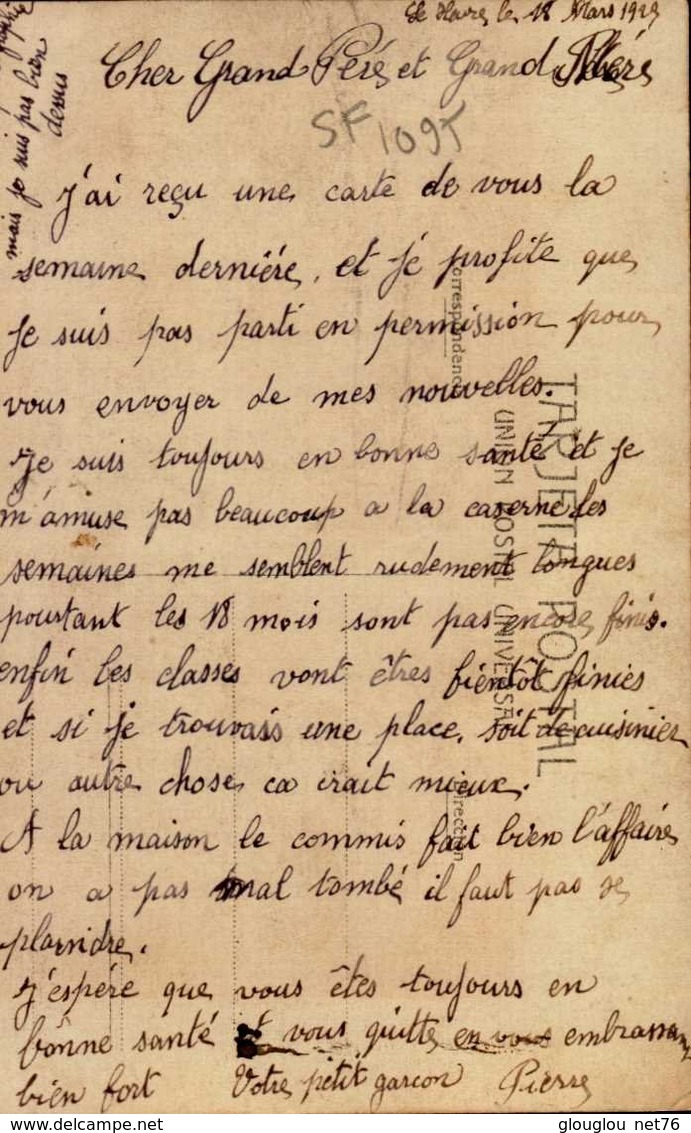 Le Havre, le 18 Mars 1929
Cher Grand Pére, et Grand Mére
SF 1095
J'ai reçu une carte de vous la
semaine derniére, et je profite que
je suis pas parti en permission pour
vous envoyer de mes nouvelles.
Je suis toujours en bonne santé et je
m'amuse pas beaucoup a la caserne les
semaines me semblent rudement longues
pourtant les 18 mois sont pas encore finis.
enfin les classes vont êtres bientôt finies
et si je trouvais une place, soit de cuisinier
ou autre chose ca irait mieux.
A la maison le commis fait bien l'affaire
on a pas mal tombé il faut pas se
plaindre.
J'espére que vous êtes toujours en
bonne santé et vous quitte en vous embrassant
bien fort Votre petit garcon Pierre
mais je suis pas bien
dessus
TARJETA POSTAL
UNION POSTAL UNIVERSAL
Correspondencia
Direccion
glouglou net76